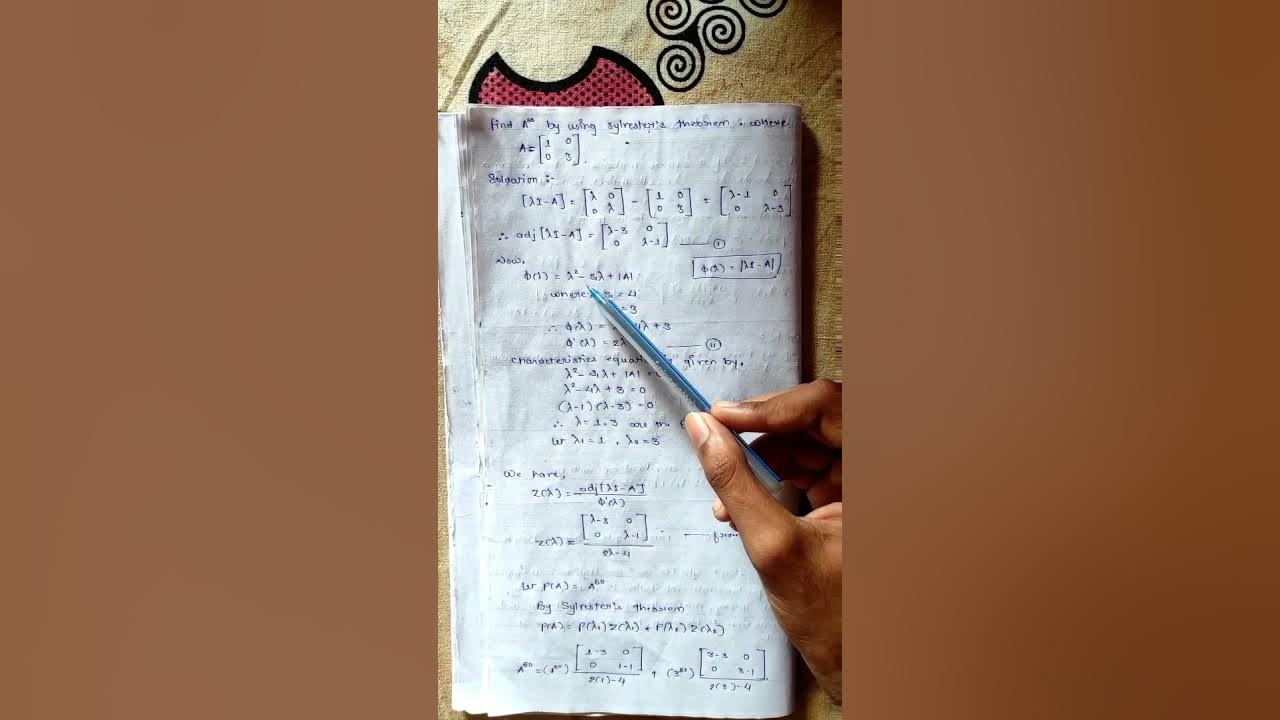 Find A⁵⁰ by using Sylvester's theorem : where
A = [1 0; 0 3].
Solution :-
[λI-A] = [λ 0; 0 λ] - [1 0; 0 3] = [λ-1 0; 0 λ-3]
∴ adj[λI-A] = [λ-3 0; 0 λ-1] —— ①
Now,
ϕ(λ) = |λI-A|
ϕ(λ) = λ² - S₁λ + |A|
where S₁ = 4
= 3
∴ ϕ(λ) = 4λ + 3
ϕ'(λ) = 2λ —— ⑪
characteristics equation is given by,
λ² - S₁λ + |A| =
λ² - 4λ + 3 = 0
(λ-1) (λ-3) = 0
∴ λ = 1, 3 are the
Let λ₁ = 1 , λ₂ = 3
We have,
Z(λ) = adj[λI-A] / ϕ'(λ)
Z(λ) = [λ-3 0; 0 λ-1] / 2λ-4 —— from
Let P(A) = A⁵⁰
By Sylvester's theorem
P(A) = P(λ₁) Z(λ₁) + P(λ₂) Z(λ₂)
A⁵⁰ = (1⁵⁰) [1-3 0; 0 1-1] / 2(1)-4 + (3⁵⁰) [3-3 0; 0 3-1] / 2(3)-4